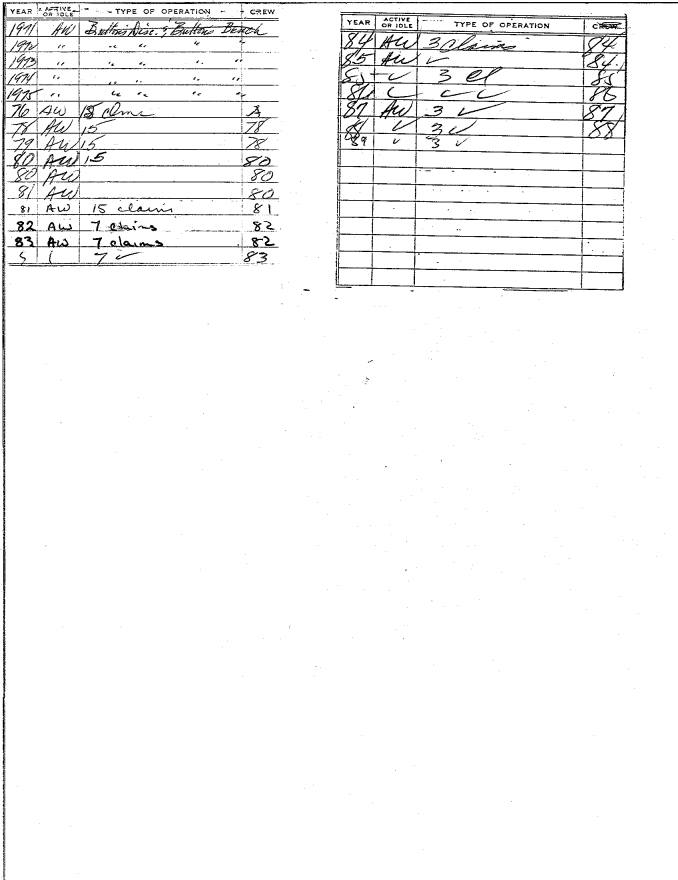 YEAR ACTIVE OR IDLE TYPE OF OPERATION CREW
1971 AW Buttons Disc. & Buttons Bench
1972 " " " " "
1973 " " " " "
1974 " " " " "
1975 " " " " "
76 AW 15
78 AW 15 78
79 AW 15 78
80 AW 15 80
80 AW 80
81 AW 80
81 AW 15 claims 81
82 AW 7 claims 82
83 AW 7 claims 82
7 ✓ 83
YEAR ACTIVE OR IDLE TYPE OF OPERATION CREW
84 AW 3 claims 84
85 AW ✓ 84
85 ✓ 3 cl 85
86
87 AW 3 ✓ 87
88 ✓ 3 ✓ 88
89 ✓ 3 ✓